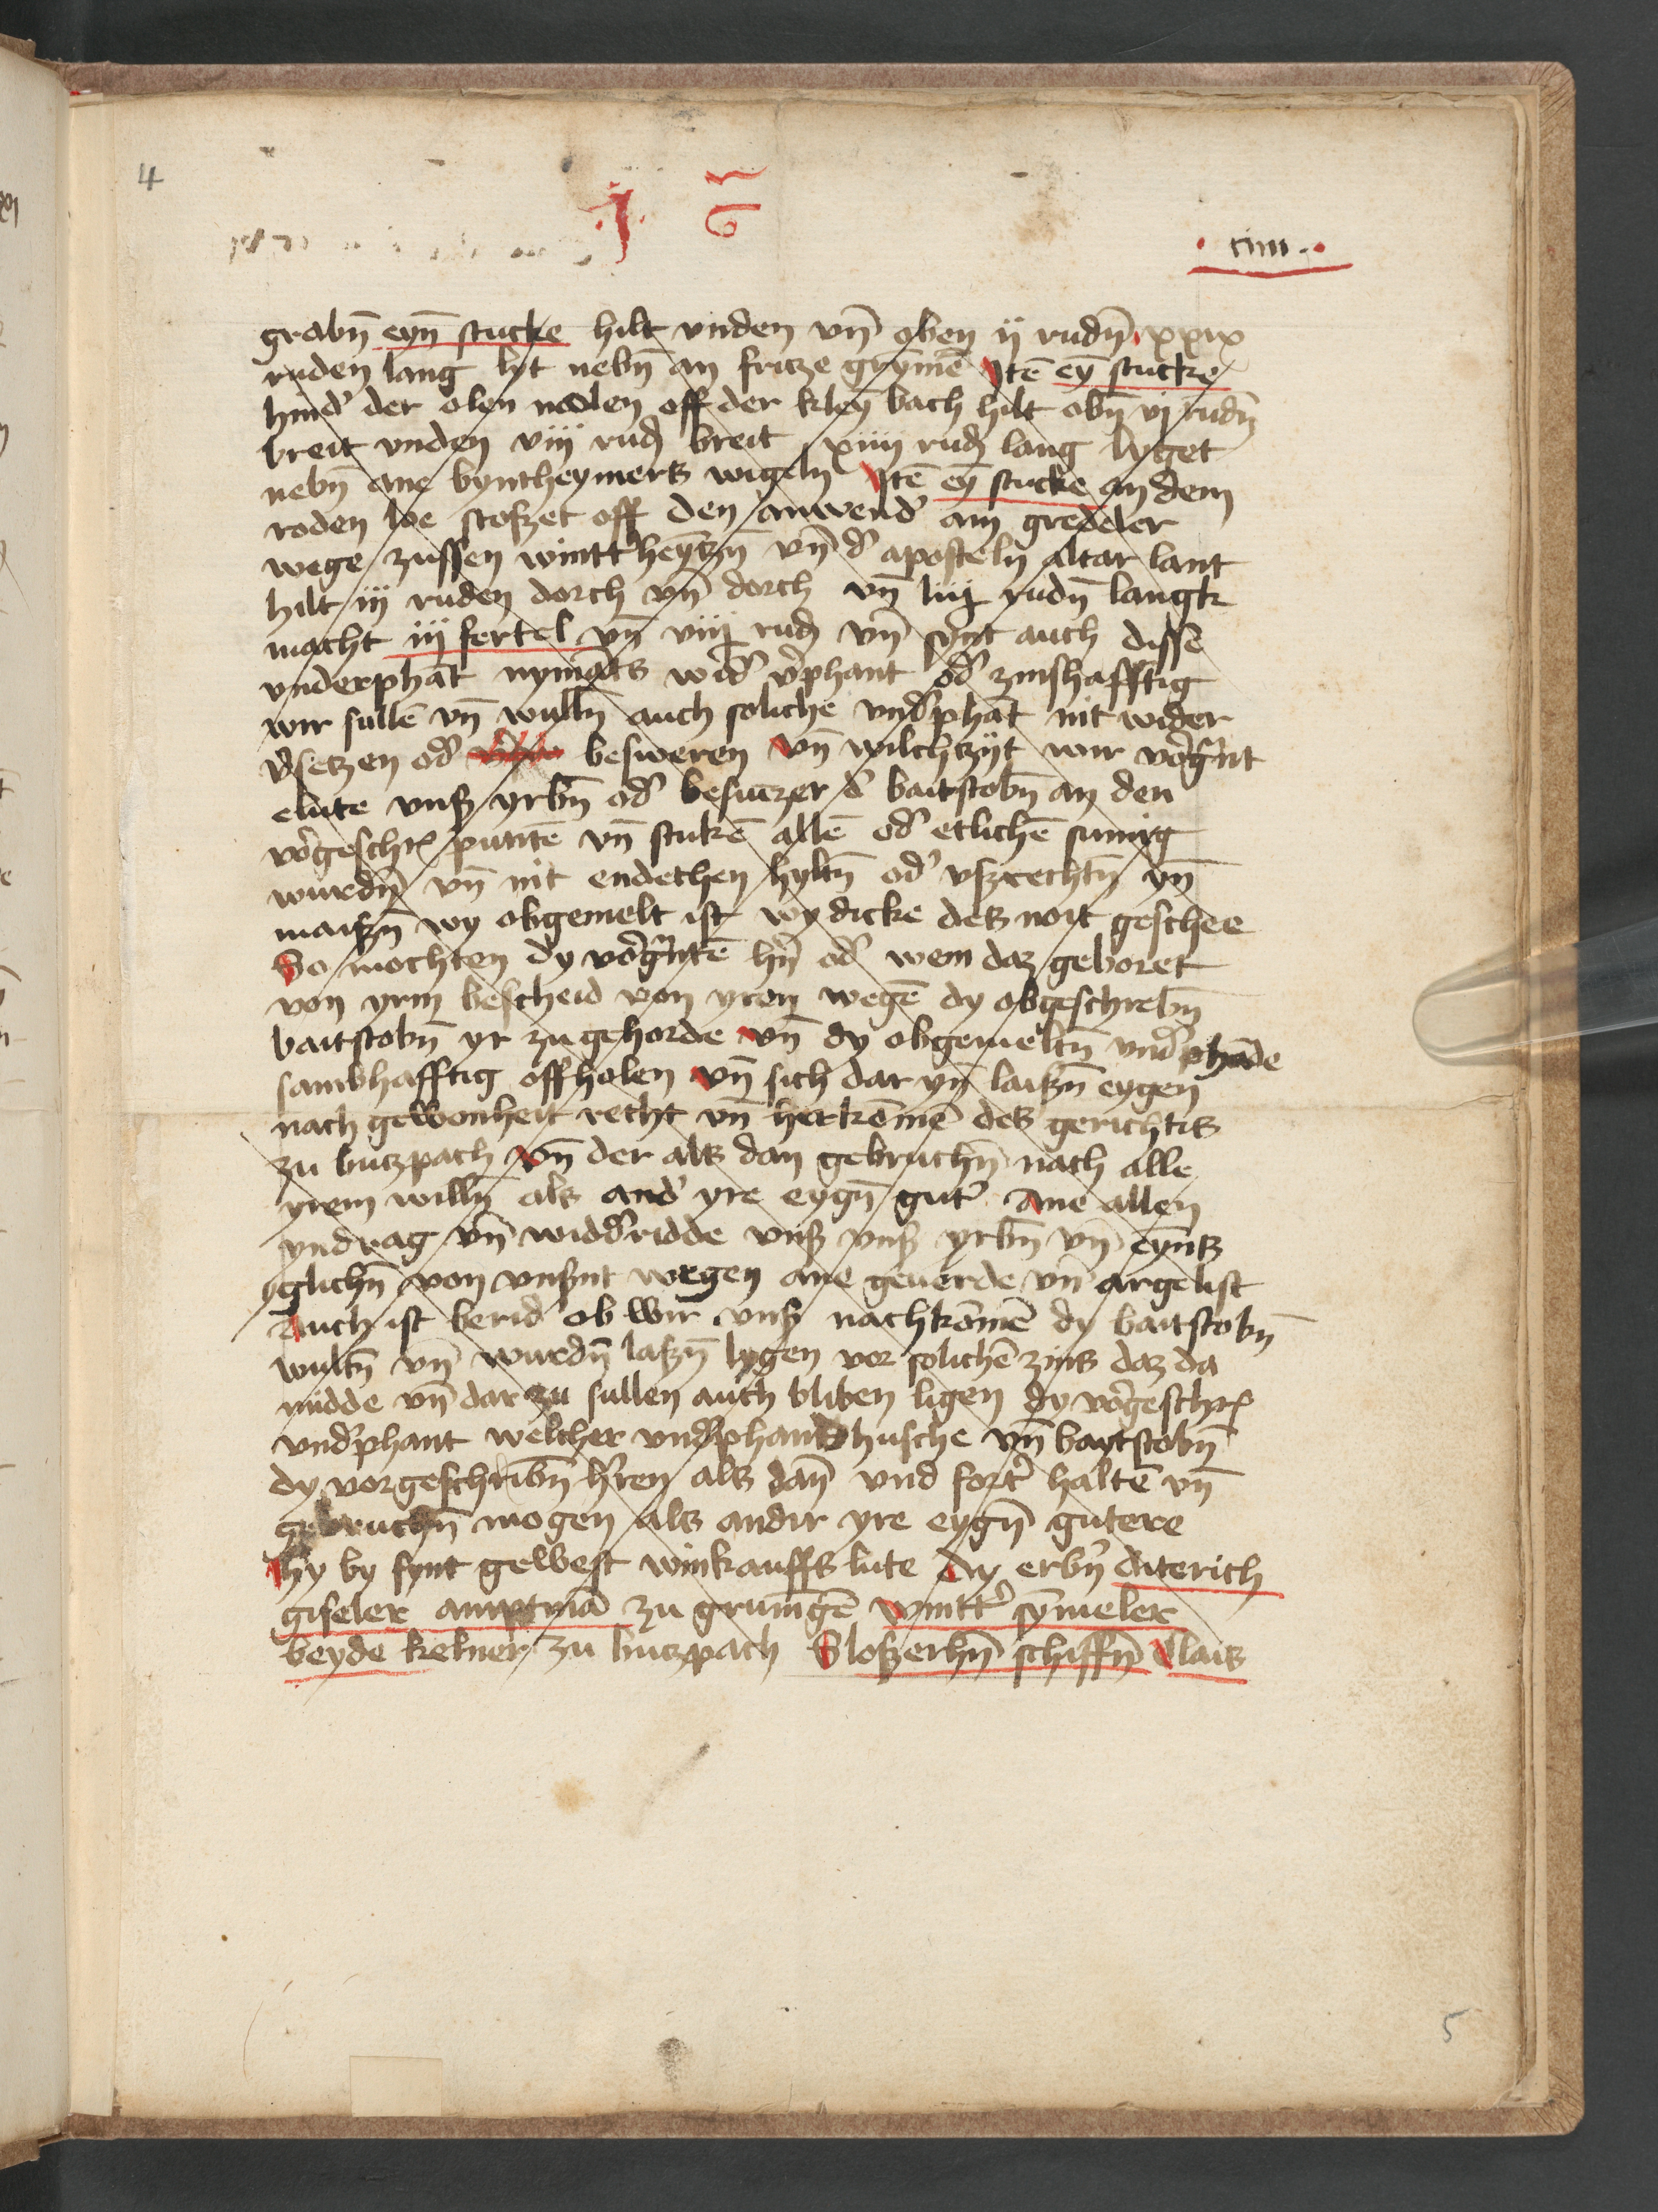 4
· J · G
· xiiii · ·
grabn̄ eyn̄ stucke hilt vnden vn̄ oben ij rudn̄ xxix
ruden lang lyt nebn̄ an fritze grymē Jtē eȳ stucke
hind' der olen molen off der kleȳ bach hilt obn̄ vj rudn̄
breit vnden viij rud breit xiiij rud lang lyget
nebn̄ ane byntheymers wigeln Jtē eȳ stucke an dem
roden loe stoßet off den anwend' am gredeler
wege zussen wintt'heyntzn̄ vn̄ d' aposteln altar lant
hilt iij ruden dorch vn̄ dorch vn̄ liij rudn̄ langk
macht iij fertel vn̄ viij rud vn̄ synt auch disse
vnderphāt nymāts wid' v'phant od' zinshafftig
wir sullē vn̄ wulln̄ auch soliche vnd'phāt nit wider
v'setzen od' besweren vn̄ wilchzyt wir vorg'nt
elute vnß yrbn̄ od' besitzer d' baitstobn̄ an den
vorgeschr puntē vn̄ stukē allē od' etlichē sumig
wurdn̄ vn̄ nit endethen hyltn̄ od' vßrechtn̄ yn̄
maißn̄ wy obgemelt ist wy dicke des noit geschee
So mochten dy vorg'ntē hn̄ od' wem daz geboret
von yrm bescheid von yren wegē dy obgeschrebn̄
baitstobn̄ yr zugehorde vn̄ dy obgemeltn̄ vnd'phāde
samhafftig offholen vn̄ sich dar yn̄ laißn̄ eygen
nach gewonheit recht vn̄ herkōmē des gerichtis
zu butzpach vn̄ der als dan gebruchn̄ nach alle
yrem willn̄ als and' yre eygn̄ gut' Ane allen
yndrag vn̄ widd'ridde vnß vnß yrbn̄ vn̄ eyns
yglichn̄ von vnßnt wegen ane geuerde vn̄ argelist
Auch ist berid' ob wir vnß nachkōmē dy baitstobn̄
wultn̄ vn̄ wurdn̄ laßn̄ lygen vor solichē zins daz da
midde vn̄ dar zu sullen auch bliben ligen dy vorgeschr
vnd'phant welcher vnd'phand husche vn̄ baytstobn̄
dy vorgeschribn̄ h'ren als dan̄ vnd fort' haltē vn̄
gebruchn̄ mogen als andir yre eygn̄ gutere
Hy by synt gewest winkauffs lute dy erbn̄ diterich
giseler amptmā zu grunīgē wintt' sȳmeler
beyde kelner zu butzpach Sloßerhn̄ schiffn̄ Clais
5